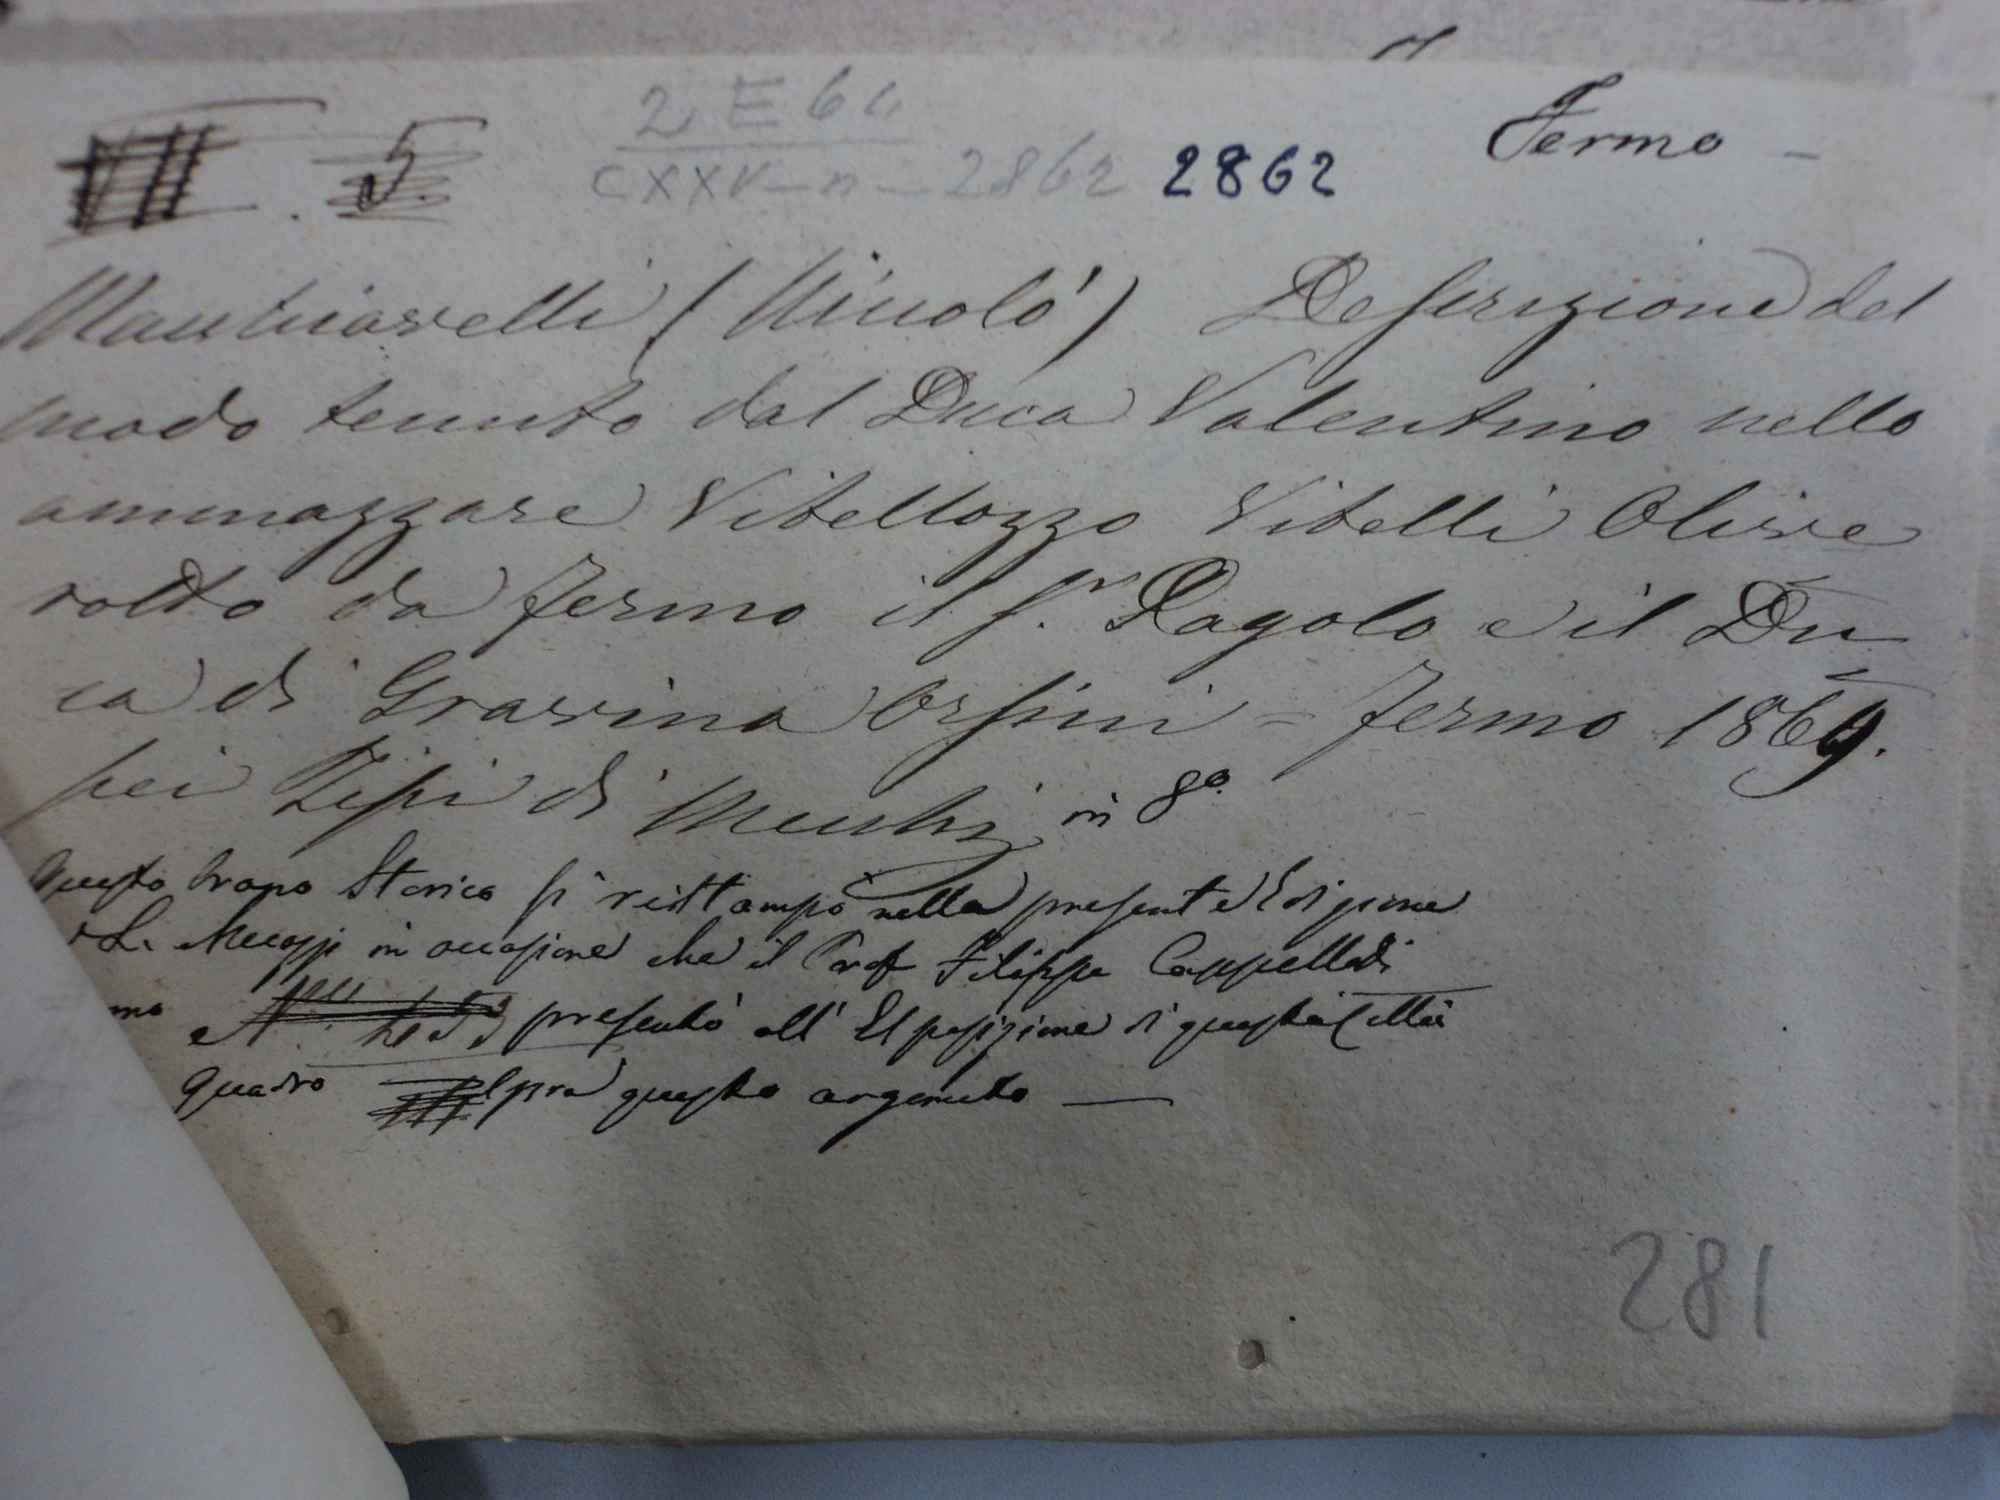 VII. 5.
2 E 6
CXXV - n - 2862 2862
Fermo -
Macchiavelli (Niccolò) Descrizione del
modo tenuto dal Duca Valentino nello
ammazzare Vitellozzo Vitelli Olive
rotto da Fermo il S.r Pagolo e il Du
ca di Gravina Orsini = Fermo 1869.
pei Tipi di Mecchi in 8°
Questo brano Storico si ristampò nella presente Edizione
in occasione che il Prof Filippo
presentò all' Esposizione di questa Città
quadro sopra questo argomento —
281